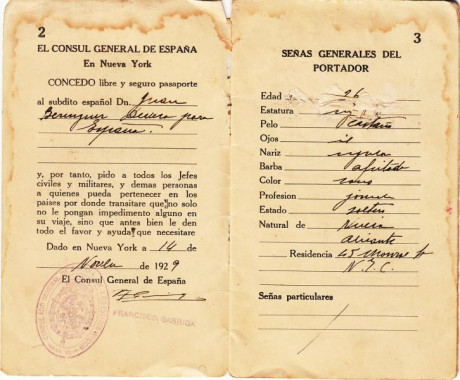 2
EL CONSUL GENERAL DE ESPAÑA
En Nueva York
CONCEDO libre y seguro pasaporte
al subdito español Dn. Juan
Berenguer para
España.
y, por tanto, pido a todos los Jefes
civiles y militares, y demas personas
a quienes pueda pertenecer en los
paises por donde transitare que no solo
no le pongan impedimento alguno en
su viaje, sino que antes bien le den
todo el favor y ayuda que necesitare
Dado en Nueva York a 14 de
Novbre 1929
El Consul General de España
FRANCISCO BARRIGA
3
SEÑAS GENERALES DEL
PORTADOR
Edad 26
Estatura
Pelo Castaño
Ojos id
Nariz regular
Barba afeitada
Color sano
Profesion jornalero
Estado soltero
Natural de
Alicante
Residencia 45 Monroe St
N.Y.C.
Señas particulares